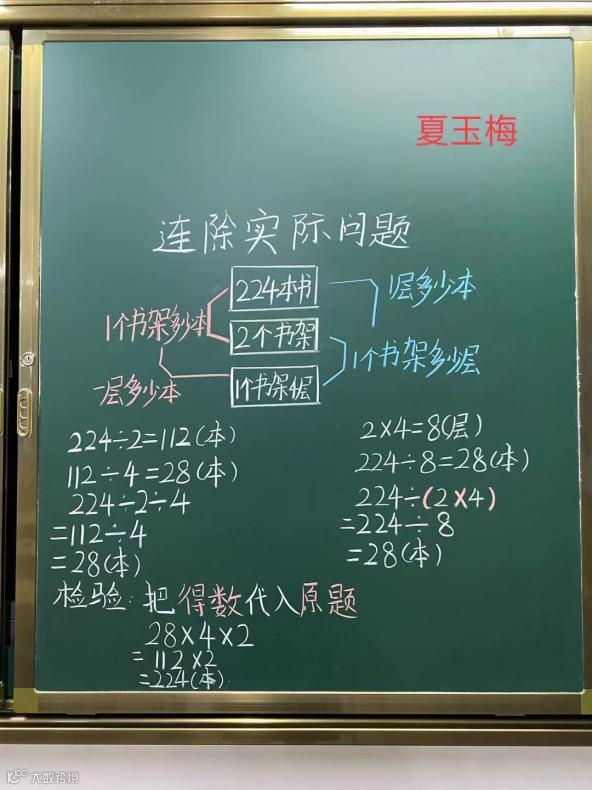 夏玉梅
连除实际问题
224本书
1层多少本
1个书架多少本
2个书架
1个书架多少层
一层多少本
1个书架4层
224÷2=112(本)
112÷4=28(本)
224÷2÷4
=112÷4
=28(本)
2×4=8(层)
224÷8=28(本)
224÷(2×4)
=224÷8
=28(本)
检验:把得数代入原题
28×4×2
=112×2
=224(本)
大数跨境